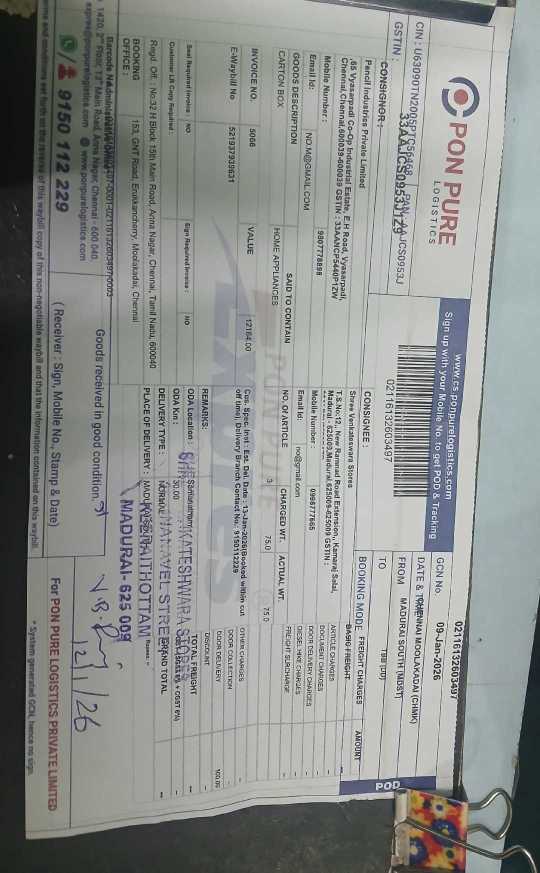 PON PURE
LOGISTICS
www.cs.ponpurelogistics.com
Sign up with your Mobile No. to get POD & Tracking
GCN No.
02116132603497
POD
CIN : U63090TN2005PTC56468 PAN: AAJCS0953J
GSTIN : 33AAJCS0953J1Z9
02116132603497
DATE & TIME
09-Jan-2026
FROM
CHENNAI MOOLAKADAI (CHMK)
TO
MADURAI SOUTH (MDST)
CONSIGNOR :
Pencil Industries Private Limited
,65 Vyasarpadi Co-Op Industrial Estate, E.H Road, Vyasarpadi,
Chennai,Chennai,600039-600039 GSTIN : 33AANCP5440P1ZW
Mobile Number :
9807778898
Email Id:
NO.M@GMAIL.COM
CONSIGNEE :
Shree Venkateswara Stores
T.S.No:12,, New Ramnad Road Extension, Kamaraj Salai,
Madurai - 625009,Madurai,625009-625009 GSTIN :
Mobile Number :
0998777665
Email Id:
no@gmail.com
BOOKING MODE
TBB (DD)
FREIGHT CHARGES
AMOUNT
BASIC FREIGHT
ARTICLE CHARGES
DOCUMENT CHARGES
DOOR DELIVERY CHARGES
DIESEL HIKE CHARGES
FREIGHT SURCHARGE
OTHER CHARGES
DOOR COLLECTION
DOOR DELIVERY
100.00
DISCOUNT
TOTAL FREIGHT
GRAND TOTAL
GOODS DESCRIPTION
SAID TO CONTAIN
NO. OF ARTICLE
CHARGED WT.
ACTUAL WT.
CARTON BOX
HOME APPLIANCES
3
75.0
75.0
INVOICE NO.
5066
VALUE
12164.00
E-Waybill No
521937939631
Cus. Spec. Inst : Est. Del. Date : 13-Jan-2026(Booked within cut
off time) Delivery Branch Contact No.: 9150112229
REMARKS:
Seal Required Invoice :
NO
Sign Required Invoice :
NO
Customer LR Copy Required :
ODA Location :
ODA Km :
30.00
DELIVERY TYPE :
NORMAL
PLACE OF DELIVERY :
MADURAI - 625 009
Regd. Off. : No:32 H Block 15th Main Road, Anna Nagar, Chennai, Tamil Nadu, 600040
BOOKING
OFFICE :
153, GNT Road, Erukkancherry, Moolakadai, Chennai
Goods received in good condition.
12/1/26
1420, 2nd Floor, 13th Main Road, Anna Nagar, Chennai - 600 040.
www.ponpurelogistics.com
9150 112 229
( Receiver : Sign, Mobile No., Stamp & Date)
For PON PURE LOGISTICS PRIVATE LIMITED
terms and conditions set forth on the reverse of waybill copy of this non-negotiable waybill and that the information contained on this waybill.
* System generated GCN, hence no sign.